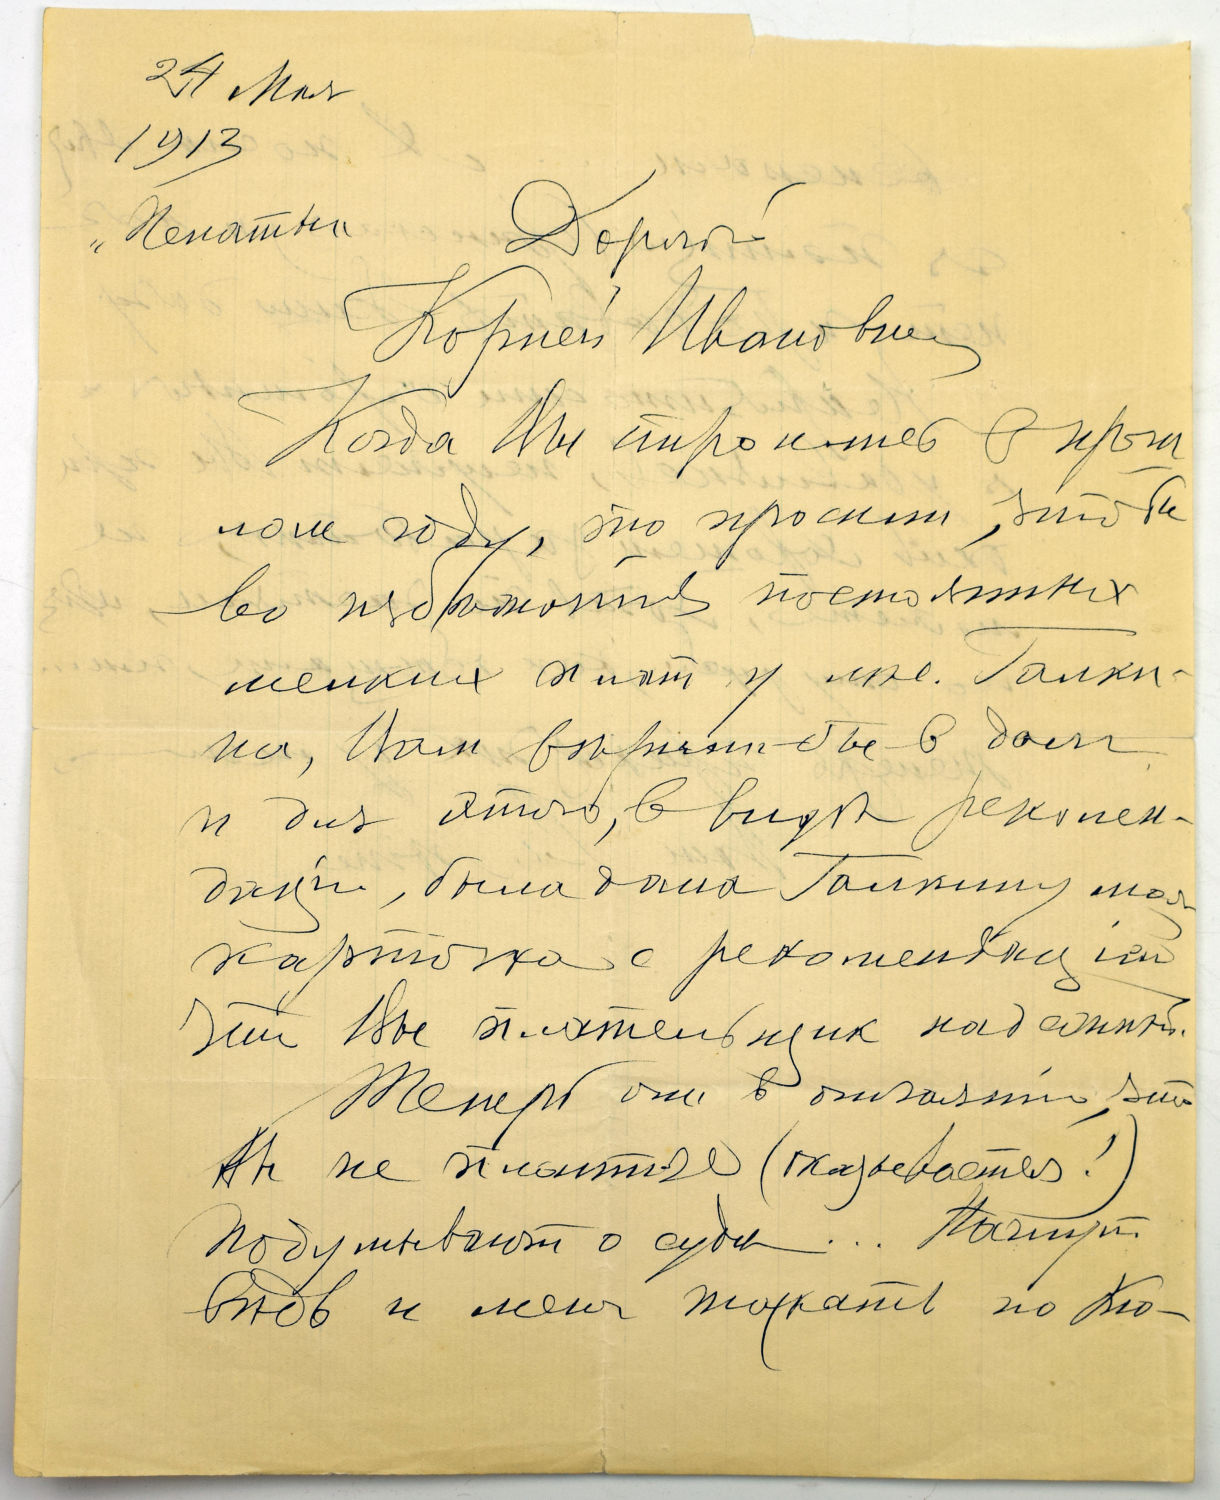 24 Мая
1913
„Пенаты“
Дорогой
Корней Иванович
Когда Вы строились в прош
лом году, то просили, чтобы
во избежанiе постоянных
мелких плат у мне. Галки-
на, Вам верили-бы в долг
и для этого, в видѣ рекомен-
дацiи, была дана Галкину моя
карточка с рекомендацiей
что Вы плательщик надежный.
Теперь они в отчаянiи, что
Вы не платите (сказывается!)
Подумывают о суде ... Начнут
вѣдь и меня таскать по Кuo-